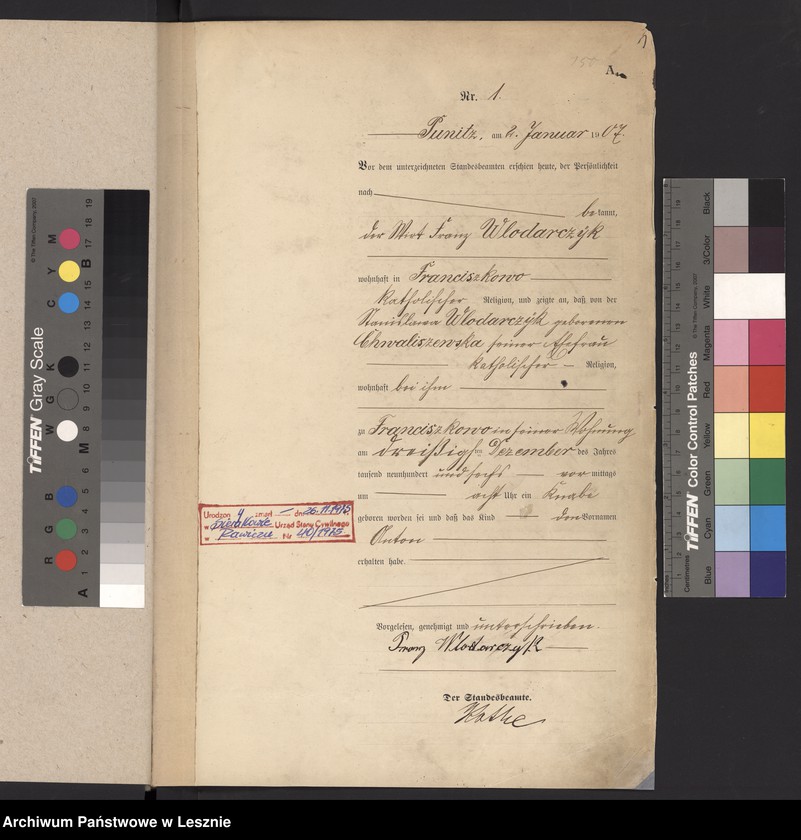 A.
Nr. 1.
Punitz, am 2. Januar 1907.
Vor dem unterzeichneten Standesbeamten erschien heute, der Persönlichkeit
nach
bekannt,
der Wirt Franz Wlodarczyk
wohnhaft in Franciszkowo
katholischer Religion, und zeigte an, daß von der
Stanislawa Wlodarczyk geborenen
Chwaliszewska seiner Ehefrau
katholischer Religion,
wohnhaft bei ihm
zu Franciszkowo in seiner Wohnung
am dreißigsten Dezember des Jahres
tausend neunhundert und sechs vormittags
um acht Uhr ein Knabe
geboren worden sei und daß das Kind den Vornamen
Anton
erhalten habe.
Vorgelesen, genehmigt und unterschrieben.
Franz Wlodarczyk
Der Standesbeamte.
Kothe
zmarł dn 26.11.1975
w Urząd Stanu Cywilnego
w Rawiczu Nr 40/1975
TIFFEN Gray Scale
© The Tiffen Company, 2007
R G B W G K C Y M
A 1 2 3 4 5 6 M 8 9 10 11 12 13 14 15 B 17 18 19
TIFFEN Color Control Patches
© The Tiffen Company, 2007
Centimetres
Blue Cyan Green Yellow Red Magenta White 3/Color Black
Archiwum Państwowe w Lesznie